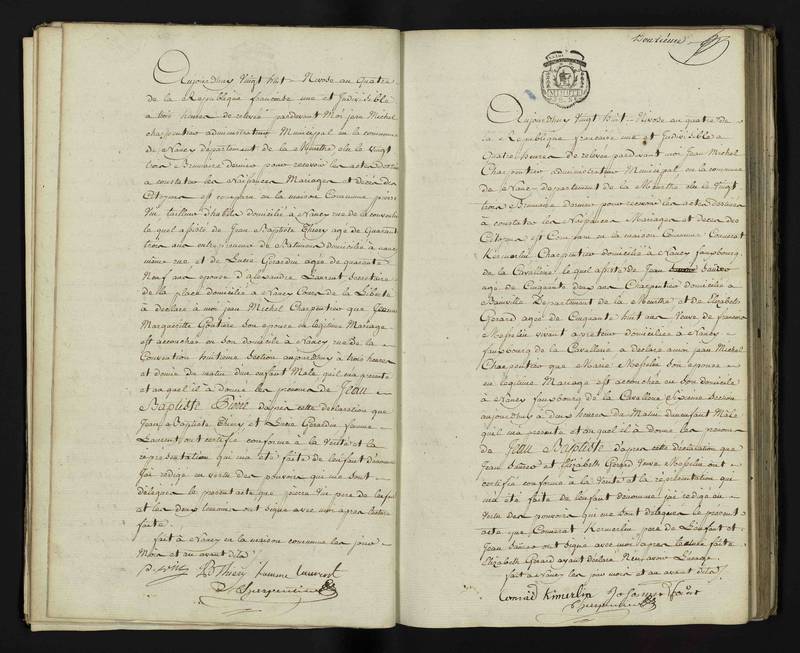 Aujourdhuy Vingt huit Nivose an Quatre
de la Republique francoise une et Indivisible
a trois heures de relevée pardevant Moi jean Michel
charpentier administrateur Municipal en la commune
de Nancy département de la Meurthe élu le Vingt
trois Brumaire dernier pour recevoir les actes
a constater les Naissances Mariages et décés des
Citoyens est comparu en la maison Commune pierre
tailleur d'habits domicilié à Nancy rue de la convention
le quel assisté de Jean Baptiste Thiery agé de Quarante
trois ans entrepreneur de Batiments domicilié à nancy
même rue et de Lucie Gerardin agée de quarante
Neuf ans epouse d'alexandre Laurent, Secretaire
de la place domicilié à Nancy Cours de la Liberté
à declaré à moi jean Michel Charpentier que
Marguerite son epouse en legitime Mariage
est accouchée en son domicile à Nancy rue de la
Convention huitieme Section aujourdhuy à trois heures
et demie du matin d'un enfant Male qu'il m'a presenté
et au quel il a donné les prenoms de Jean
Baptiste d'après cette déclaration que
Jean Baptiste Thiery et Lucie Gerardin femme
Laurent, ont certifié conforme à la Verité et la
représentation qui m'a été faite de l'enfant dénommé
J'ai rédigé en vertu des pouvoirs qui me sont
délégués le présent acte que pere de l'enfant
et les deux temoins ont signé avec moi apres lecture
faite.
fait à Nancy en la maison commune les jour
Mois et an avant dits
B Thiery femme laurent
Charpentier
MINUTE
Aujourdhuy Vingt huit Nivose an quatre de
la République francoise une et Indivisible a
Quatre heures de relevée pardevant moi Jean Michel
Charpentier administrateur Municipal en la commune
de Nancy département de la Meurthe élu le Vingt
trois Brumaire dernier pour recevoir les actes destinés
à constater les Naissances Mariages et deces des
Citoyens est Comparu en la maison Commune Conrat
Charpentier domicilié à Nancy fauxbourg
de la Cavallerie le quel assisté de Jean
agé de Cinquante deux ans Charpentier domicilié à
Département de la Meurthe et de Elizabeth
Gerard agée de Cinquante huit ans Veuve de francois
vivant domiciliée à Nancy
fauxbourg de la Cavallerie a declaré a moi jean Michel
Charpentier que Marie son epouse
en legitime Mariage est accouchée en son domicile
à Nancy fauxbourg de la Cavallerie Section
aujourdhuy à deux heures du Matin d'un enfant Mâle
qu'il m'a presenté et au quel il a donné les prenoms
de Jean Baptiste d'apres cette déclaration que
Jean et Elizabeth Gerard Veuve ont
certifié conforme à la Verité et la réprésentation qui
m'a été faite de l'enfant dénommé j'ai redigé en
Vertu des pouvoirs qui me sont délégués le présent
acte que Conrat pere de L'enfant et
Jean ont signé avec moi apres lecture faite
Elizabeth Gerard ayant declaré N'en avoir L'usage.
fait à Nancy les jour mois et an avant dits.
Conrad Kimerlin
Charpentier